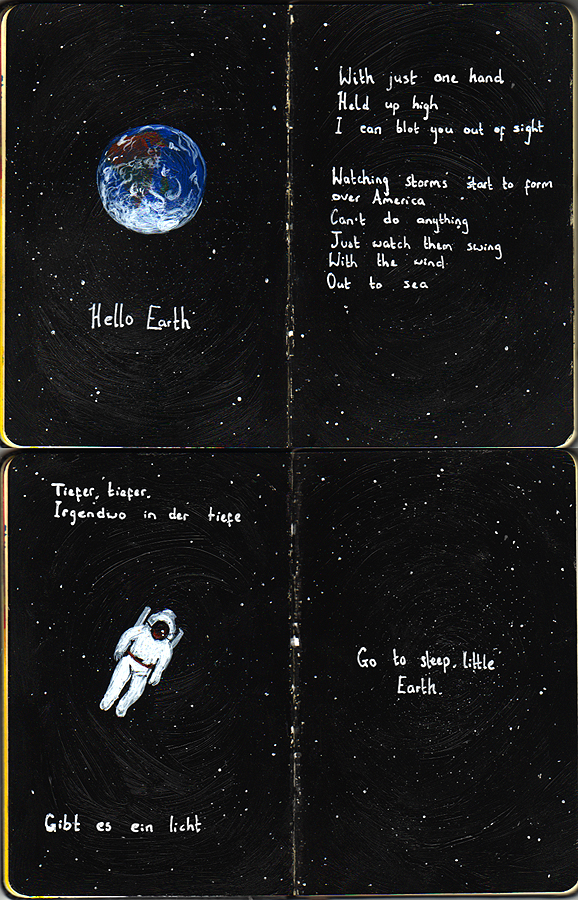 Hello Earth
With just one hand
Held up high
I can blot you out of sight
Watching storms start to form
over America
Can't do anything
Just watch them swing
With the wind
Out to sea
Tiefer, tiefer.
Irgendwo in der tiefe
Gibt es ein licht
Go to sleep, little
Earth.